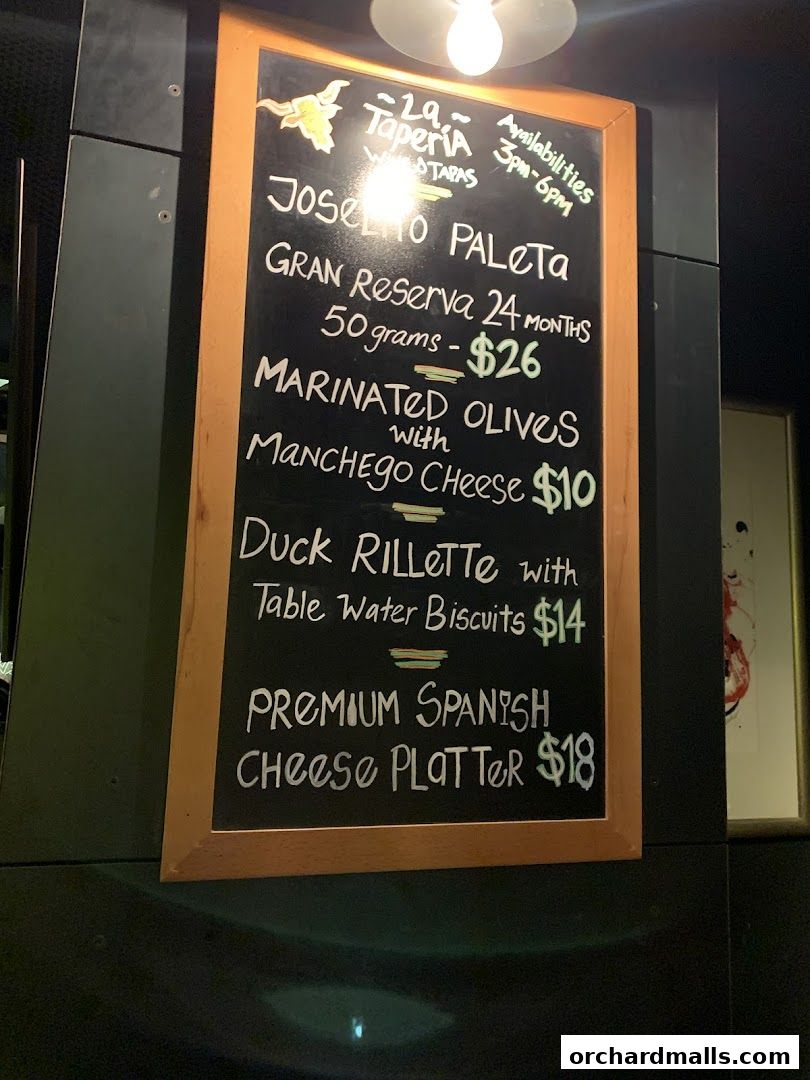 ~ La ~
Taperia
TAPAS
Availabilities
3pm-6pm
JOSELITO PALeTa
GRAN Reserva 24 MONTHS
50 grams - $26
MARINATeD OLIVeS
with
MaNCHEGO CHeese $10
Duck RILLeTTe with
Table Water Biscuits $14
PReMIUM SPANISH
CHeeSe PLaTTeR $18
orchardmalls.com